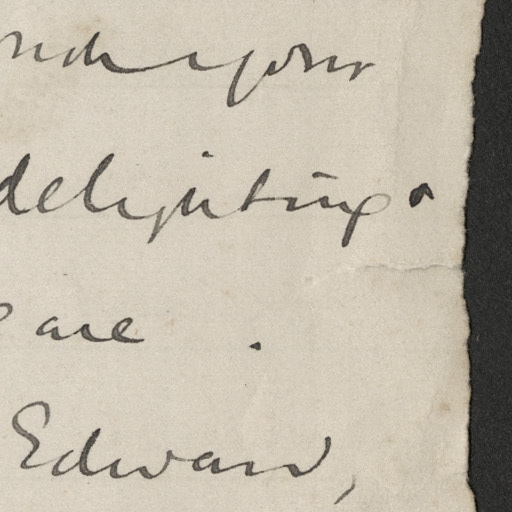 your
delighting
are .
Edward,